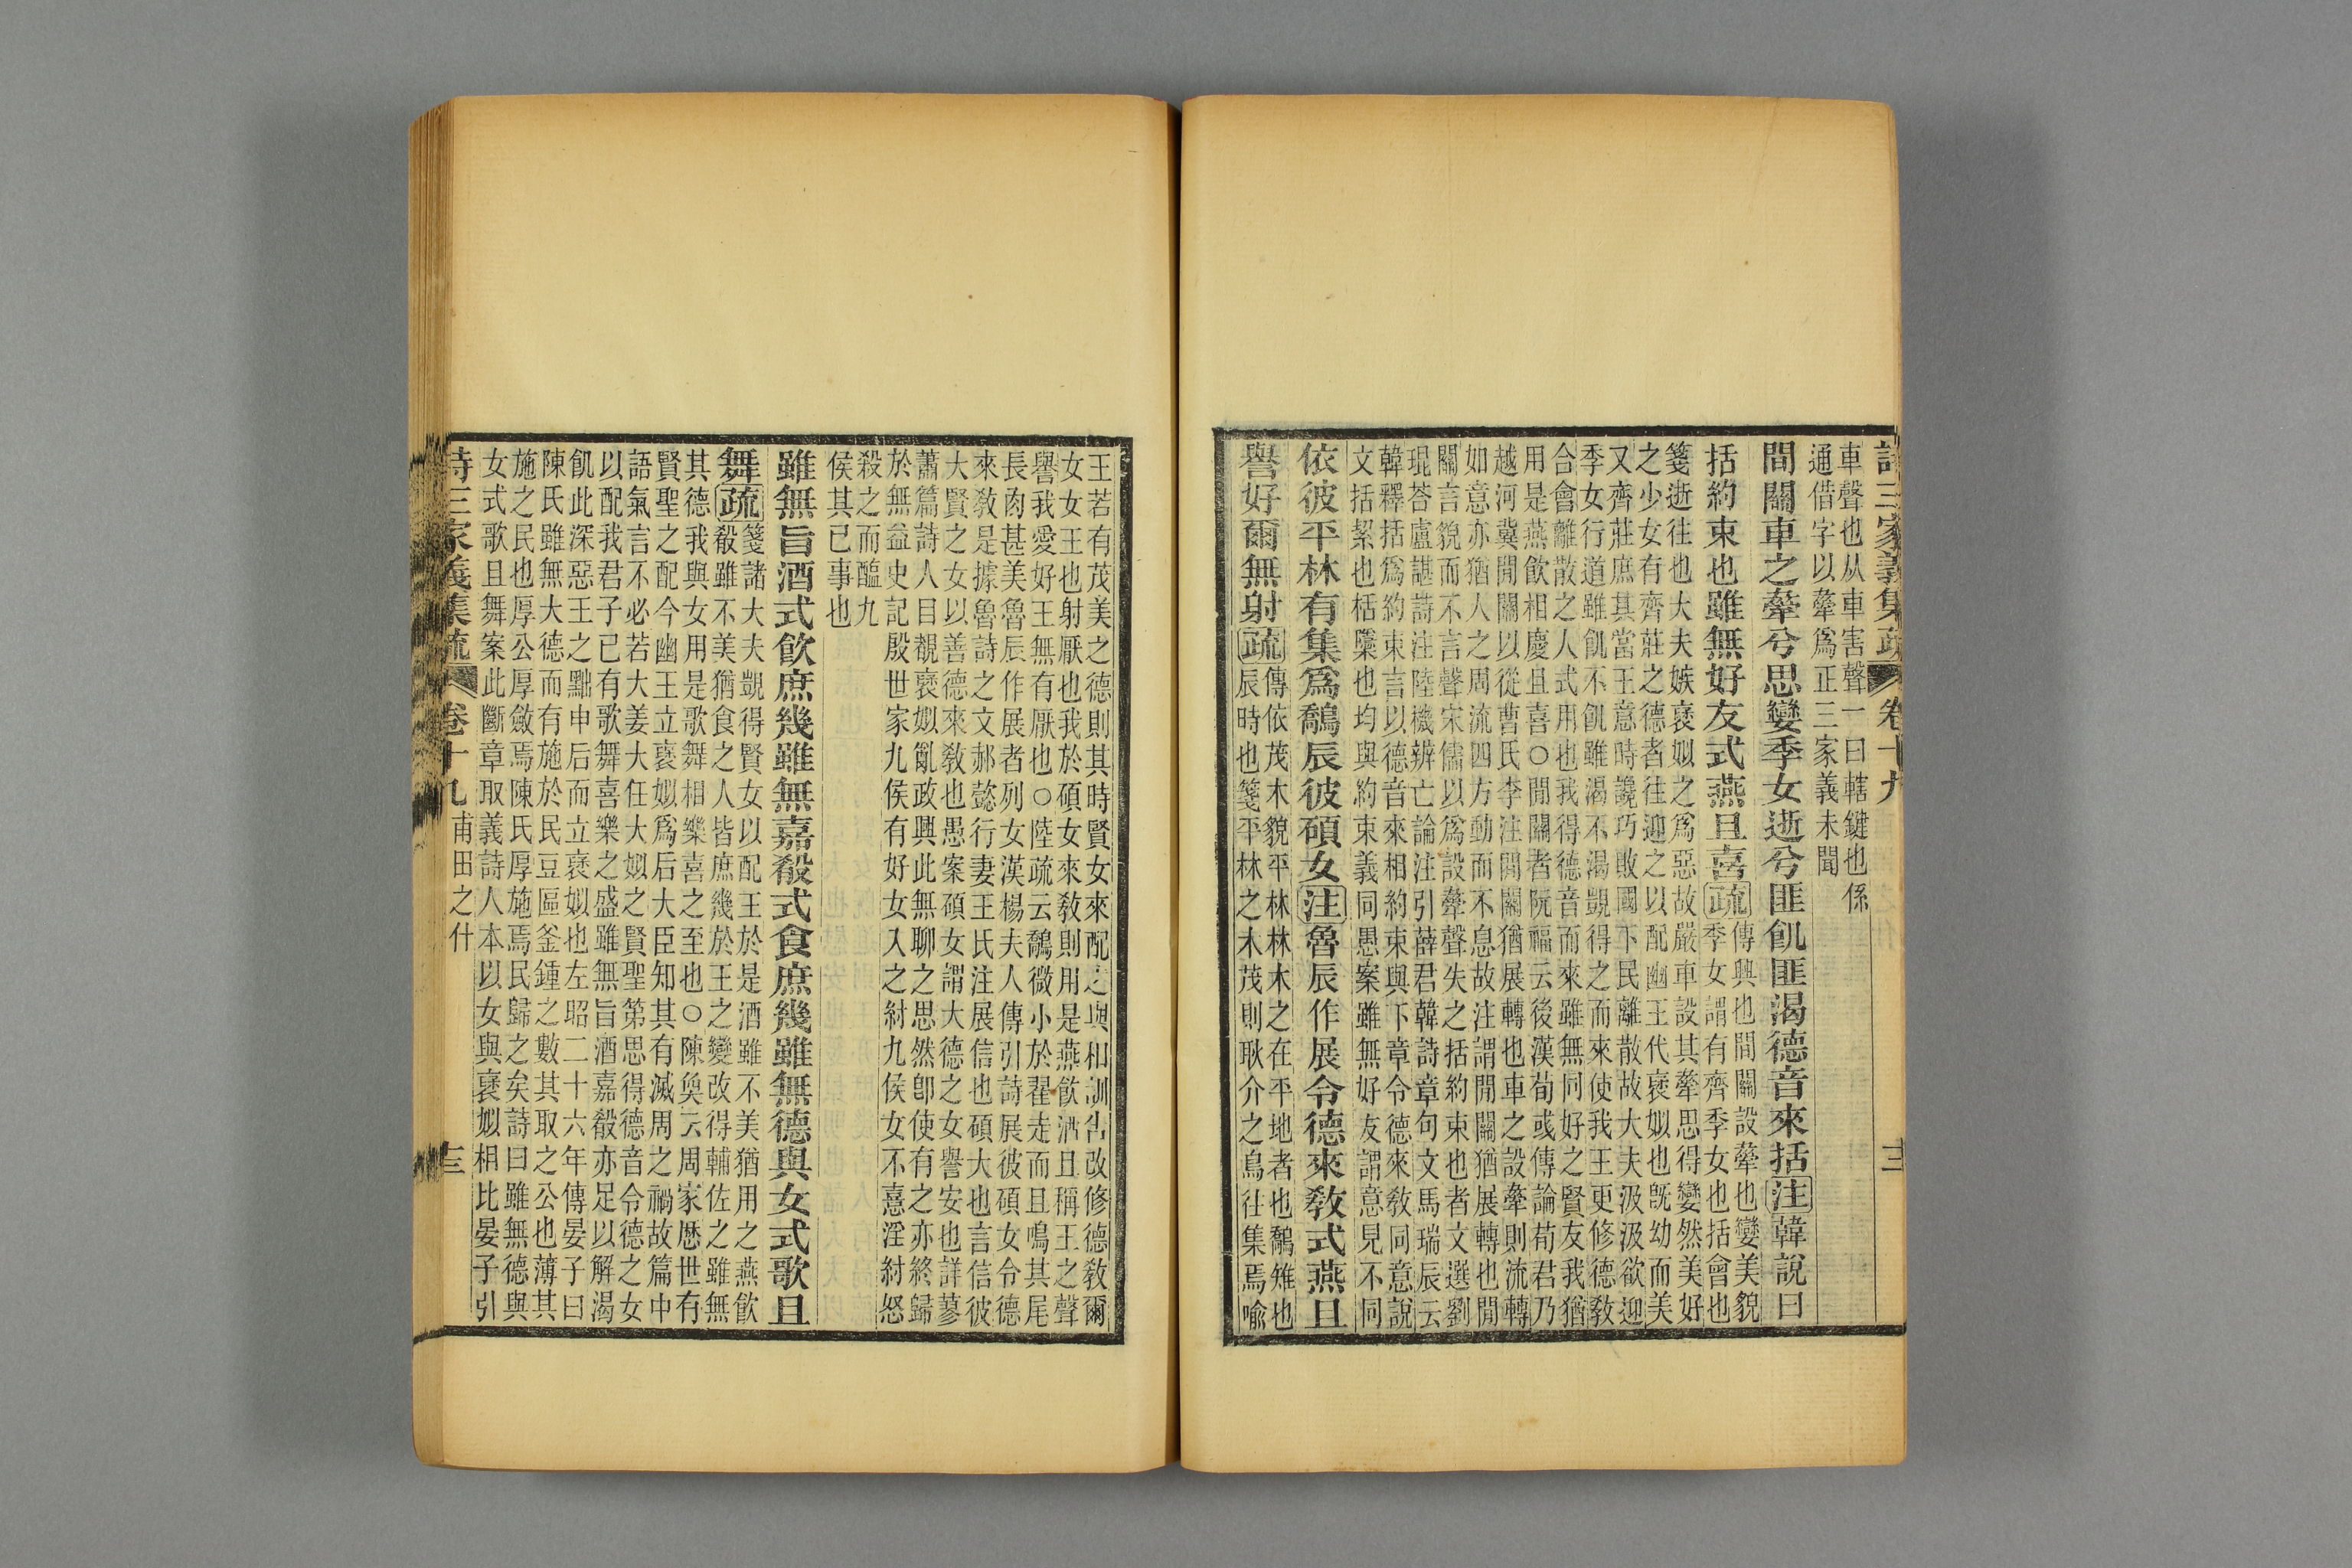 詩三家義集疏　卷十九　三
車聲也从車害聲一曰轄鍵也係
通借字以舝爲正三家義未聞
間關車之舝兮思孌季女逝兮匪飢匪渴德音來括注韓說曰
括約束也雖無好友式燕且喜疏
傳興也間關設舝也孌美貌
季女謂有齊季女也括會也
箋逝往也大夫嫉襃姒之爲惡故嚴車設其舝思得孌然美好
之少女有齊莊之德者往迎之以配幽王代襃姒也旣幼而美
又齊莊庶其當王意時讒巧敗國下民離散故大夫汲汲欲迎
季女行道雖飢不飢雖渴不渴覬得之而來使我王更修德敎
合會離散之人式用也我得德音而來雖無同好之賢友我猶
用是燕飲相慶且喜○閒關者阮福云後漢荀彧傳論荀君乃
越河冀閒關以從曹氏李注閒關猶展轉也車之設舝則流轉
如意亦猶人之周流四方動而不息故注謂閒關猶展轉也閒
關言貌而不言聲宋儒以爲設舝聲失之括約束也者文選劉
琨荅盧諶詩注陸機辨亡論注引薛君韓詩章句文馬瑞辰云
韓釋括爲約束言以德音來相約束與下章令德來敎同意說
文括絜也栝檃也均與約束義同愚案雖無好友謂意見不同
依彼平林有集爲鷮辰彼碩女注魯辰作展令德來敎式燕且
譽好爾無射疏
傳依茂木貌平林林木之在平地者也鷮雉也
辰時也箋平林之木茂則耿介之鳥往集焉喻
王若有茂美之德則其時賢女來配之與相訓告改修德敎爾
女女王也射厭也我於碩女來敎則用是燕飮酒且稱王之聲
譽我愛好王無有厭也○陸疏云鷮微小於翟走而且鳴其尾
長肉甚美魯辰作展者列女漢楊夫人傳引詩展彼碩女令德
來敎是據魯詩之文郝懿行妻王氏注展信也碩大也言信彼
大賢之女以善德來敎也愚案碩女謂大德之女譽安也詳蓼
蕭篇詩人目覩襃姒亂政興此無聊之思然卽使有之亦終歸
於無益史記殷世家九侯有好女入之紂九侯女不憙淫紂怒
殺之而醢九
侯其已事也
雖無旨酒式飮庶幾雖無嘉殽式食庶幾雖無德與女式歌且
舞疏
箋諸大夫覬得賢女以配王於是酒雖不美猶用之燕飮
殽雖不美猶食之人皆庶幾於王之變改得輔佐之雖無
其德我與女用是歌舞相樂喜之至也○陳奐云周家歷世有
賢聖之配今幽王立襃姒爲后大臣知其有滅周之禍故篇中
語氣言不必若大姜大任大姒之賢聖第思得德音令德之女
以配我君子已有歌舞喜樂之盛雖無旨酒嘉殽亦足以解渴
飢此深惡王之黜申后而立襃姒也左昭二十六年傳晏子曰
陳氏雖無大德而有施於民豆區釜鍾之數其取之公也薄其
施之民也厚公厚斂焉陳氏厚施焉民歸之矣詩曰雖無德與
女式歌且舞案此斷章取義詩人本以女與襃姒相比晏子引
詩三家義集疏　卷十九　甫田之什　十三